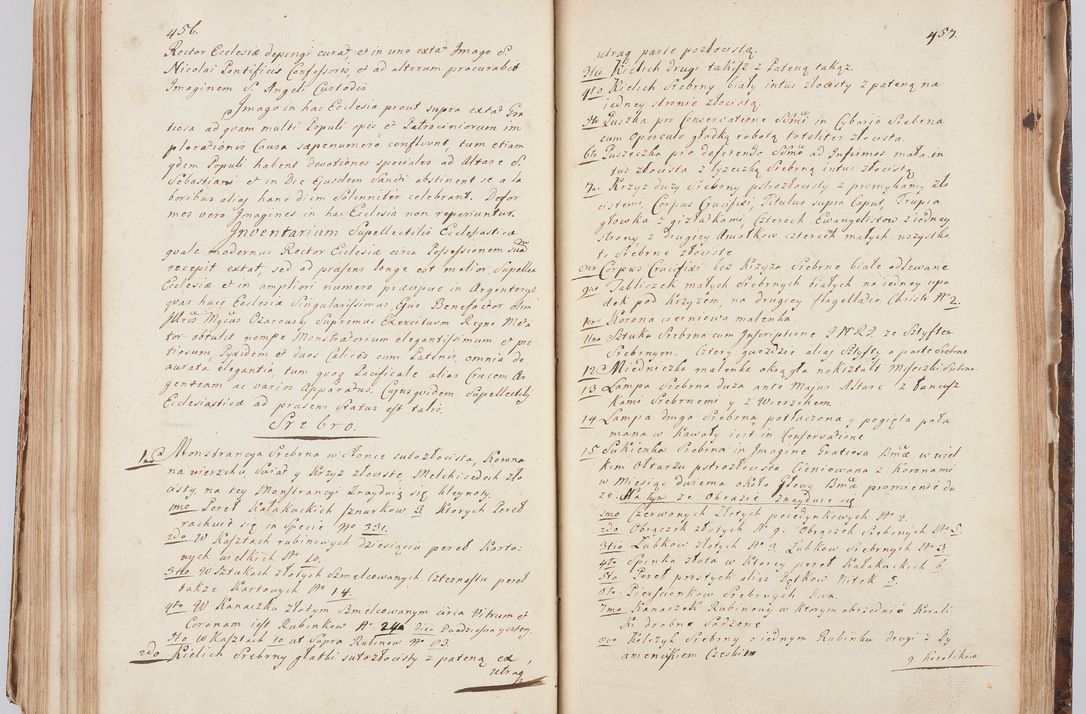 456.
Rector Ecclesiæ depingi curat et in uno extat Imago S.
Nicolai Pontificis Confessoris et ad alterum procurabit
Imaginem S. Angeli Custodis
Imago in hac Ecclesia prout supra extat Gra
tiosa ad quam multi Populi opis et Patrociniorum im
plorationis Causa sæpenumero confluunt, tum etiam
qdem Populi habent devotiones speciales ad Altare S.
Sebastiani et in Die Ejusdem Sancti abstinent se a la
boribus alias hanc diem Solenniter celebrant. Defor
mes vero Imagines in hac Ecclesia non reperiuntur.
Inventarium Supellectilis Ecclesiasticæ
quale modernus Rector Ecclesiæ circa Possessionem suã
recepit extat, sed ad præsens longe est melior Supellex
Ecclesiæ et in ampliori numero præcipue in Argenterys
quas huic Ecclesiæ Singularissimus Ejus Benefactor olim
Mgcus Ozarowski Supremus Exercituum Regni Meta
tor obtulit nempe Monstratorium elegantissimum et pe
tiosum, Pyxidem et duos Calices cum Patenis, omnia de
aurata elegantia tum quoq Pacificale alias Crucem Ar
genteam ac varios apparatus. Cujusquidem Supellectilis
Ecclesiasticæ ad præsens Status est talis.
Srebro.
1mo Monstrancya Srebrna w słonce suto złocista, Korona
na wierzchu Swiat y Krzyz złociste, Melchisedech zło
cisty, na tey Monstrancyi Znayduią się kleynoty.
1mo Pereł Kałakuckich sznurkow 3. ktorych Pereł
rachuie się in Specie No 331.
2do W Kasztach rubinowych dziesięciu pereł Karto
wych wielkich No 10.
3tio W Sztukach złotych Szmelcowanych Czternastu pereł
także Kartowych No 14.
4to W Kanaczku złotym Szmelcowanym circa Vitrum et
Coronam jest Rubinkow No 24 dico Dwadziescia y cztery.
5to W Kasztach 10 ut Supra Rubinow No 83
2do Kielich Srebrny gładki suto złocisty z pateną ex
utraq

457.
utraq parte pozłocistą.
3tio Kielich drugi takisz z Pateną takąz.
4to Kielich Srebrny biały intus złocisty z pateną na
iedney stronie złocistą
5to Puszka pro Conservatione SSmi in Ciborio Srebrna
cum Operculo gładką robotą totaliter złocista.
6to Puszeczka pro deferendo SSmo ad Infirmos mała in
tus złocista z łyzeczką Srebrną intus złocistą
7mo Krzyz duzy Srebrny pstrozłocisty z promykami zło
cistemi, Corpus Crucifixi, Titulus supra Caput, Trupia
głowka z giżałkami, Czterech Ewangelistow z iedney
strony, z drugiey Aniołkow czterech małych wszystko
to Srebrne złociste
8vo Corpus Crucifixi bez Krzyza Srebrne białe odlewane
9no Tabliczek małych Srebrnych białych na iedney upa
dek pod Krzyzem, na drugiey flagellatio Christi No 2.
10mo Korona cierniowa malenka
11mo Sztuka Srebrna cum Inscriptione INRI ze Sztyftem
Srebrnym. Cztery gwozdzie alias Sztyfty a parte Srebrne
12 Miedniczka malenka okrągła na kształt Miseczki Srebrna
13 Lampa Srebrna duza ante Majus Altare z łancusz
kami Srebrnemi y z Wierzchem
14 Lampa druga Srebrna potłuczona y pogięta poła
mana w Kawały iest in Conservatione
15 Sukienka Srebrna in Imagine Gratiosa Bmæ w wiel
kim Ołtarzu pstrozłocista Cieniowana z Koronami
w Miesiąc dwiema około głowy Bmæ promienie du
ze. Na tym ze Obrazie Znayduie się
1mo Czerwonych Złotych poiedynkowych No 9.
2do Obrączek złotych No 9. Obrączek Srebrnych No 5.
3tio Lubkow złotych No 3. Lubkow Srebrnych No 3.
4to Spinka złota w ktorey pereł Kałakuckich 6.
5to Pereł prostych alias Zętkow Nitek 5.
6to Pierscionkow Srebrnych dwa.
7mo Kanaczek Rubinowy w ktorym obrzednio Korali
ki drobne Sadzone
8vo Kolczyk Srebrny o iednym Rubinku drugi z Dy
amencikiem Czeskim
9 Koralikow